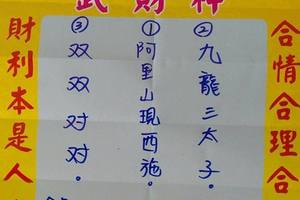 武財神
合情合理合
②九龍三太子。
①阿里山現西施。
③双双对对。
財利本是人